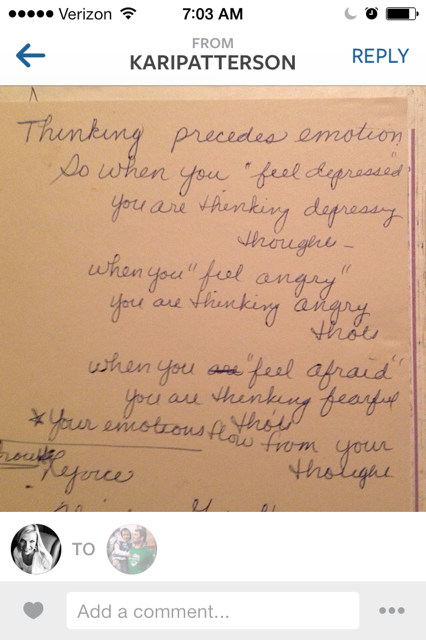 Verizon 7:03 AM
FROM
KARIPATTERSON
REPLY
Thinking precedes emotion
So when you "feel depressed"
you are thinking depressing
thoughts -
when you "feel angry"
you are thinking angry
thots
when you are "feel afraid"
you are thinking fearful
thots
*Your emotions flow from your
thoughts
Rejoice
TO
Add a comment...